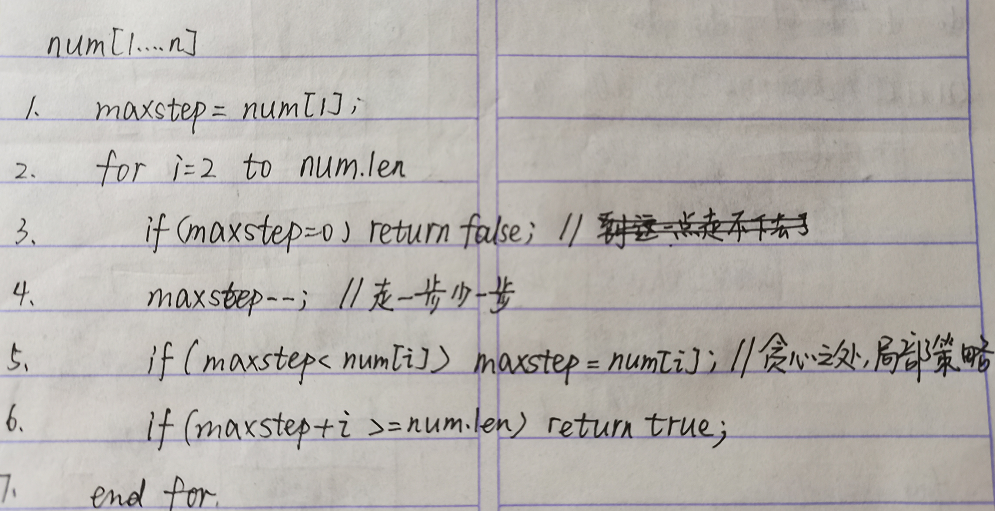 num[1....n]
1. maxstep = num[1];
2. for i=2 to num.len
3. if(maxstep=0) return false; // 到这一点走不下去了
4. maxstep--; // 走一步少一步
5. if(maxstep<num[i]) maxstep=num[i]; // 贪心之处,局部策略
6. if(maxstep+i >=num.len) return true;
7. end for.